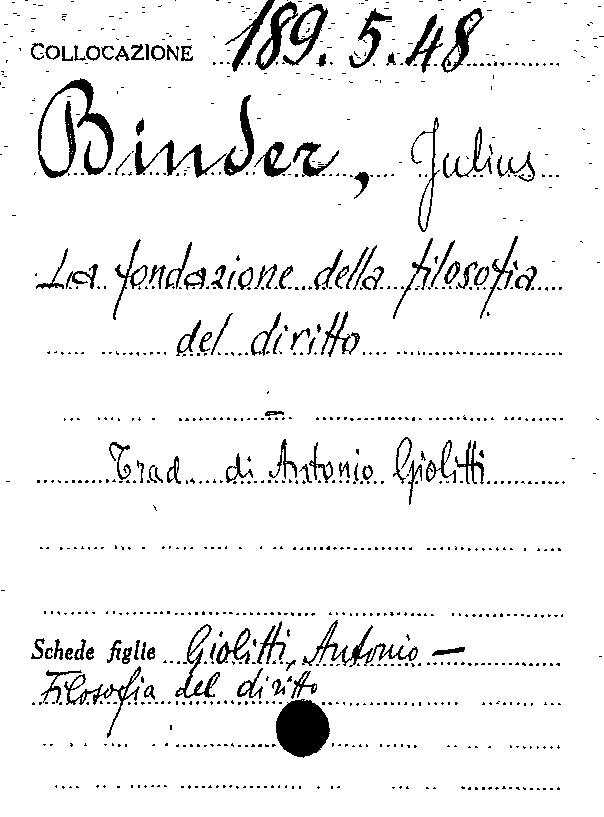 COLLOCAZIONE 189.5.48
Binder, Julius
La fondazione della filosofia
del diritto
—
Trad. di Antonio Giolitti
Schede figlie Giolitti, Antonio —
Filosofia del diritto